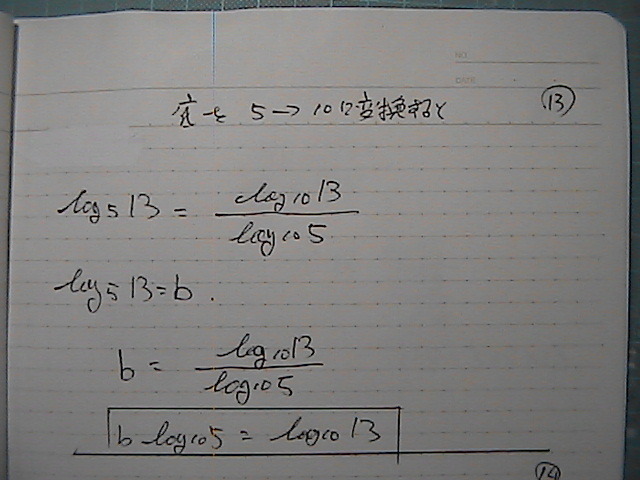 底を 5→10に変換すると ⑬
NO.
DATE
log₅13 = log₁₀13 / log₁₀5
log₅13=b.
b = log₁₀13 / log₁₀5
b log₁₀5 = log₁₀13
⑭